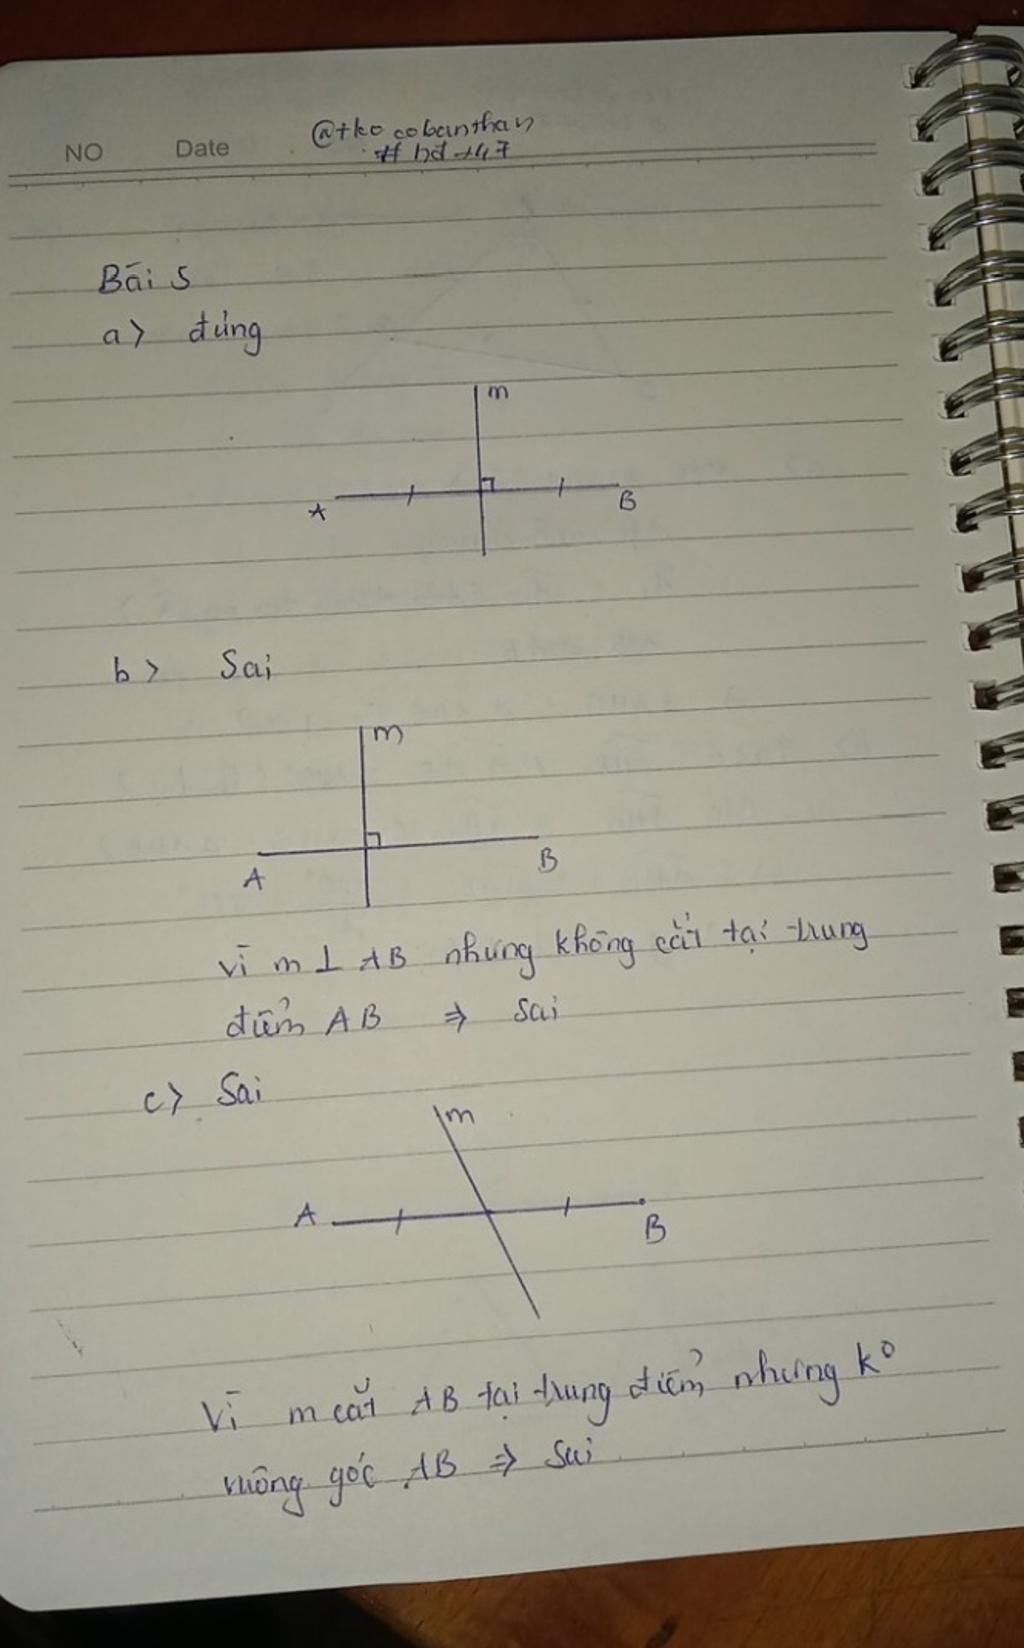 NO Date @tko cobanthan
# hd-t47
Bài 5
a> đúng
m
A B
b> Sai
m
A B
vì m ⊥ AB nhưng không cắt tại trung
điểm AB ⇒ Sai
c> Sai
m
A B
Vì m cắt AB tại trung điểm nhưng k°
vuông góc AB ⇒ Sai